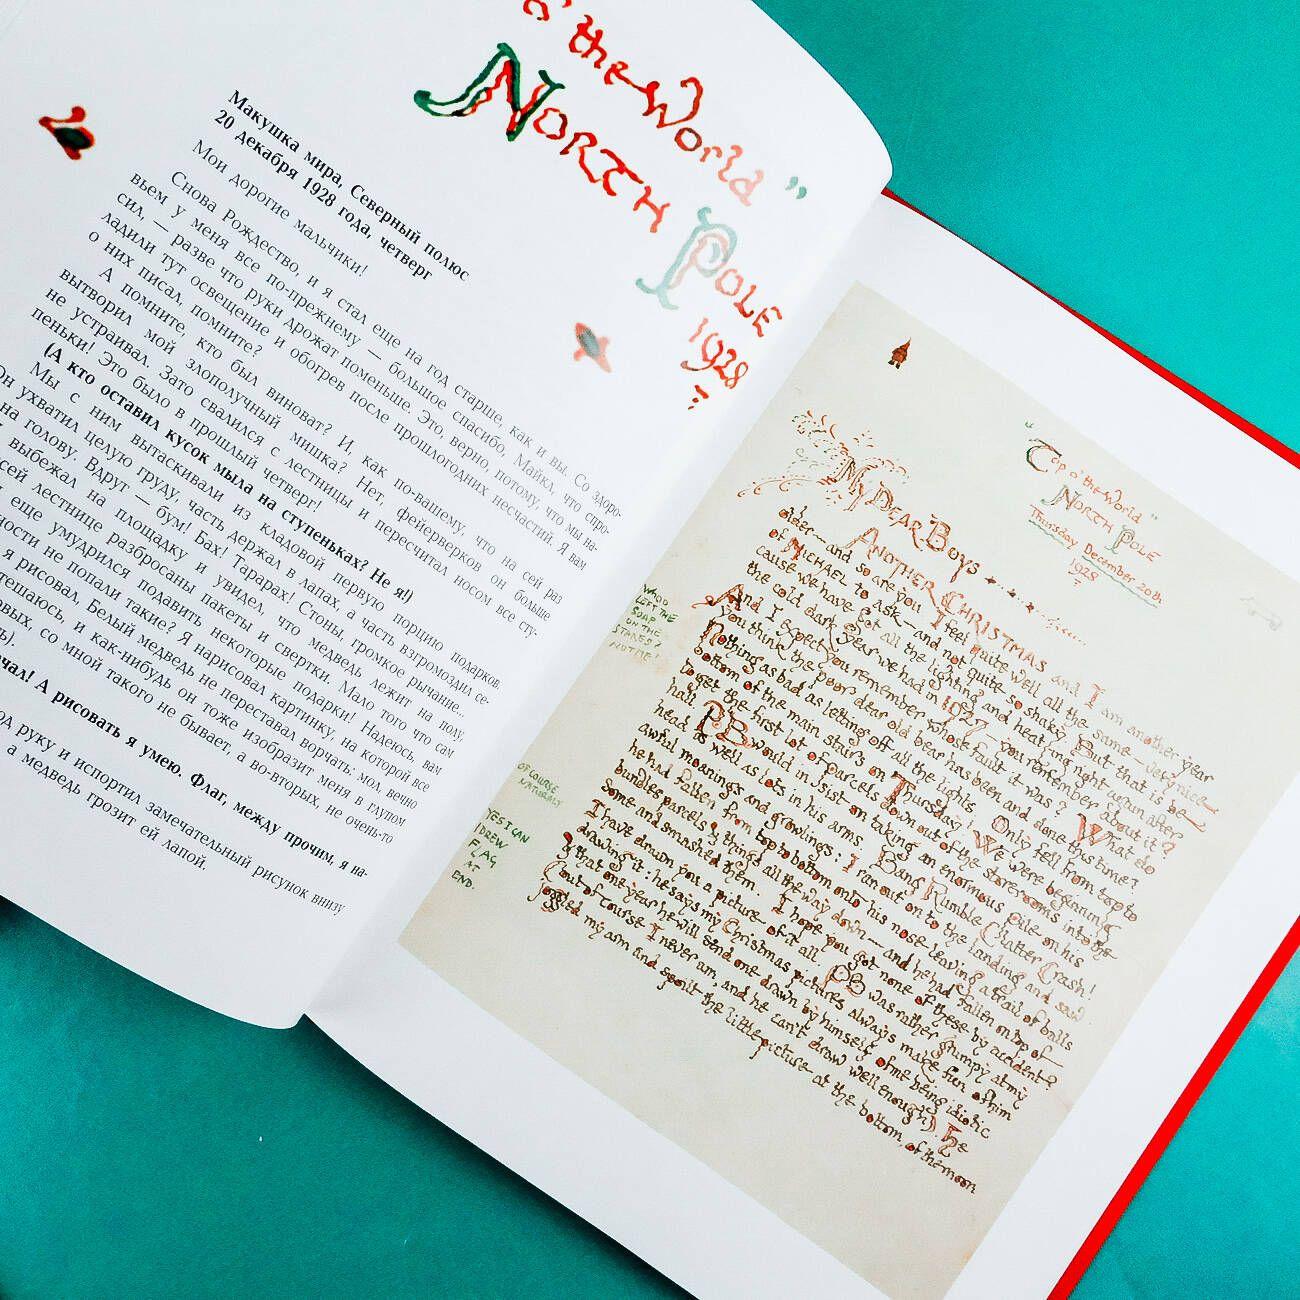 the World"
NORTH POLE
1928
Макушка мира, Северный полюс
20 декабря 1928 года, четверг
Мои дорогие мальчики!
Снова Рождество, и я стал еще на год старше, как и вы. Со здоро-
вьем у меня все по-прежнему — большое спасибо, Майкл, что спро-
сил, — разве что руки дрожат поменьше. Это, верно, потому, что мы на-
ладили тут освещение и обогрев после прошлогодних несчастий. Я вам
о них писал, помните?
А помните, кто был виноват? И, как по-вашему, что на сей раз
вытворил мой злополучный мишка? Нет, фейерверков он больше
не устраивал. Зато свалился с лестницы и пересчитал носом все сту-
пеньки! Это было в прошлый четверг!
(А кто оставил кусок мыла на ступеньках? Не я!)
Мы с ним вытаскивали из кладовой первую порцию подарков.
Он ухватил целую груду, часть держал в лапах, а часть взгромоздил се-
на голову. Вдруг — бум! Бах! Тарарах! Стоны, громкое рычание...
выбежал на площадку и увидел, что медведь лежит на полу,
сей лестнице разбросаны пакеты и свертки. Мало того что сам
еще умудрился подавить некоторые подарки! Надеюсь, вам
ности не попали такие? Я нарисовал картинку, на которой все
я рисовал, Белый медведь не переставал ворчать: мол, вечно
тешаюсь, и как-нибудь он тоже изобразит меня в глупом
вых, со мной такого не бывает, а во-вторых, не очень-то
чал! А рисовать я умею. Флаг, между прочим, я на-
од руку и испортил замечательный рисунок внизу
а медведь грозит ей лапой.
"Top o' the World"
NORTH POLE
Thursday December 20th
1928
MY DEAR BOYS
ANOTHER CHRISTMAS and I am another year
older — and so are you. I feel quite well all the same — very nice
of MICHAEL to ask — and not quite so shaky. But that is be-
cause we have got all the lighting and heating right again after
the cold dark year we had in 1927 — you remember about it?
And I expect you remember whose fault it was? What do
you think the poor dear old bear has been and done this time?
Nothing as bad as letting off all the lights. Only fell from top to
bottom of the main stairs on Thursday! We were beginning
to get the first lot of parcels down out of the storerooms into the
hall. PB would insist on taking an enormous pile on his
head as well as lots in his arms. Bang Rumble Clatter Crash!
awful moanings and growlings: I ran out on to the landing and saw
he had fallen from top to bottom onto his nose leaving a trail of balls
bundles parcels & things all the way down — and he had fallen on top of
some and smashed them. I hope you got none of these by accident?
I have drawn you a picture of it all. PB was rather grumpy at my
drawing it: he says my Christmas pictures always make fun of him
& that one year he will send one drawn by himself of me being idiotic
(but of course I never am, and he can't draw well enough). He
joggled my arm and spoilt the little picture at the bottom, of the moon
WHO
LEFT THE
SOAP
ON THE
STAIRS?
NOT ME!
OF COURSE
NATURALLY
YES I CAN
I DREW
FLAG
AT
END.